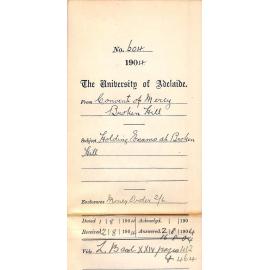 No. 604
1904
The University of Adelaide.
From Convent of Mercy
Broken Hill
Subject Holding Exams at Broken
Hill
Enclosures Money Order 2/6
Dated 1 | 8 | 1904 Acknowl. | | 190
Received 2 | 8 | 1904 Answered 2 | 8 | 1904
Vide L. Book XXIV pages 462
& 464